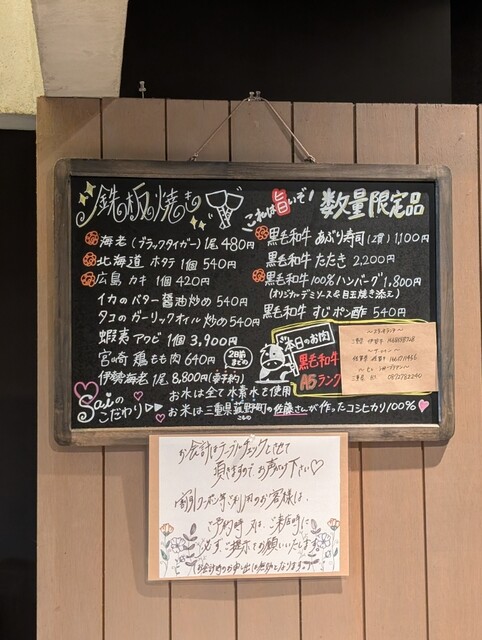 鉄板焼き
これは旨いぞ!
数量限定品
海老(ブラックタイガー)1尾 480円
北海道 ホタテ 1個 540円
広島 カキ 1個 420円
イカのバター醤油炒め 540円
タコのガーリックオイル炒め 540円
蝦夷アワビ 1個 3,900円
宮崎鶏もも肉 640円
伊勢海老 1尾 8,800円(要予約)
2日前まで
黒毛和牛 あぶり寿司(2貫) 1,100円
黒毛和牛 たたき 2,200円
黒毛和牛100%ハンバーグ 1,800円
(オリジナルデミソース&目玉焼き添え)
黒毛和牛 すじポン酢 540円
本日のお肉
黒毛和牛
A5ランク
Saiのこだわり
お水は全て水素水を使用
お米は三重県菰野町の佐藤さんが作ったコシヒカリ100%
こもの
お会計はテーブルチェックとさせて
頂きますのでお声がけ下さい♡
割引クーポン等ご利用のお客様は、
ご予約時又は、ご来店時に
必ずご提示でお願いいたします。
(お会計時のお申し出は無効となります。)